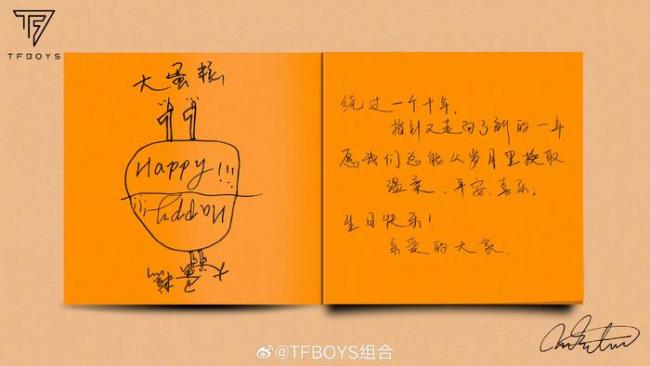 TFBOYS
大蛋糕
Happy!!!
Happy!!!
大蛋糕
绕过一个十年，
指针又走向了新的一年.
愿我们总能从岁月里换取
温柔、平安、喜乐；
生日快乐！
亲爱的大家.
@TFBOYS组合